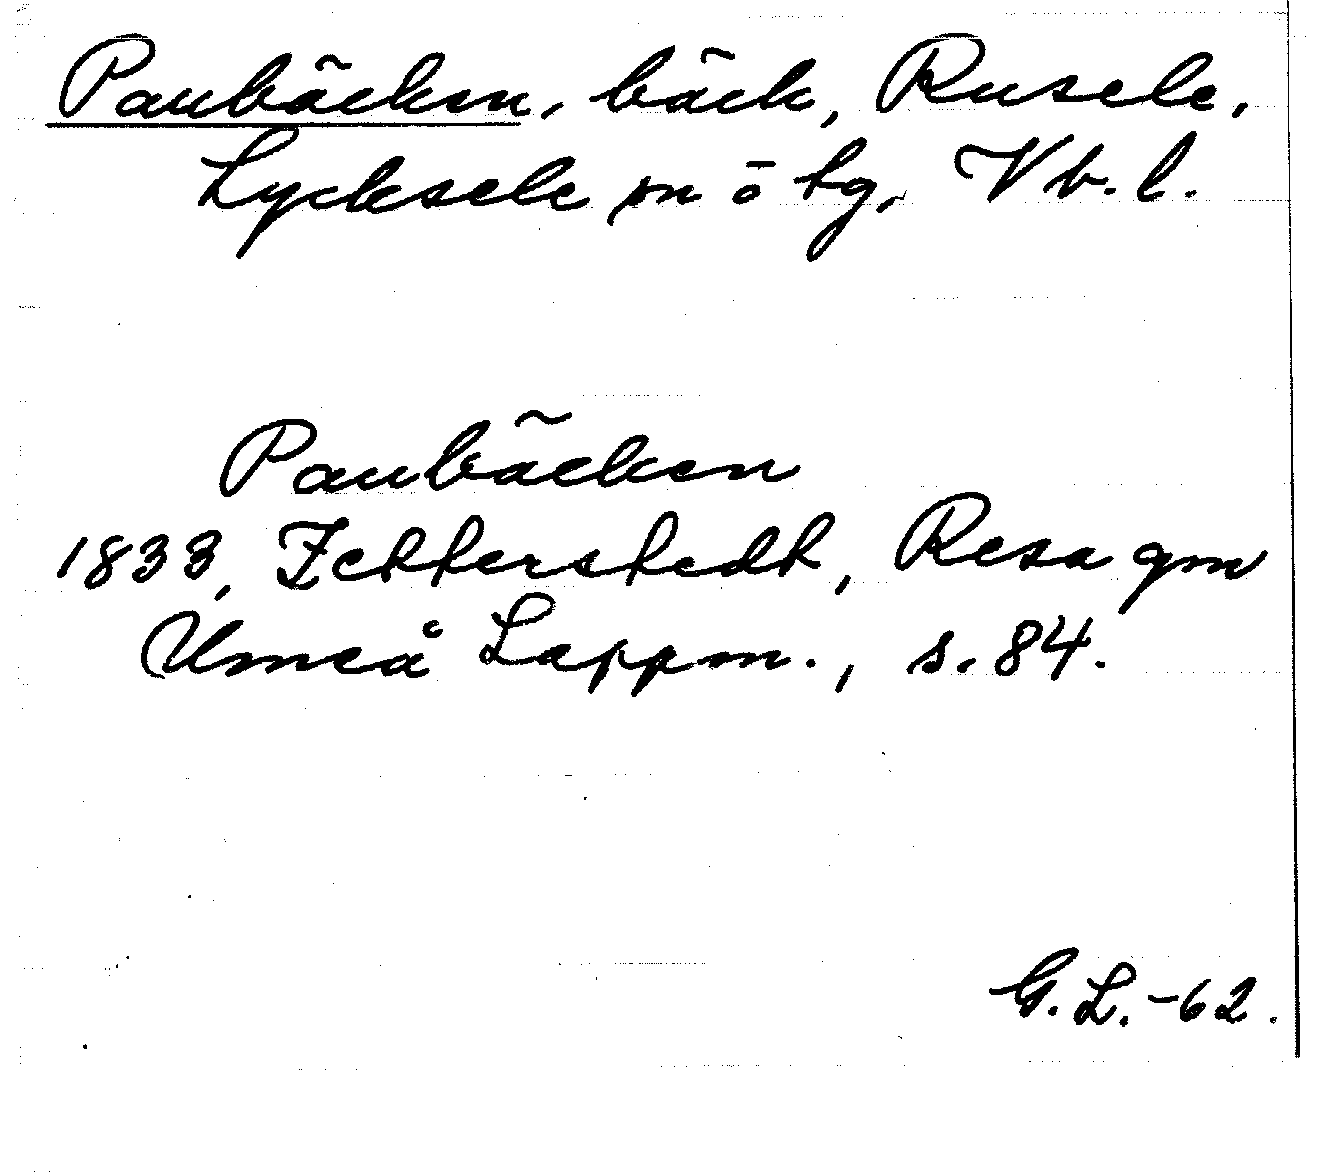 Paubäcken, bäck, Rusele,
Lycksele sn o tg, Vb.l.
Paubäcken
1833, Zetterstedt, Resa gm
Umeå Lappm., s. 84.
G.L.-62.